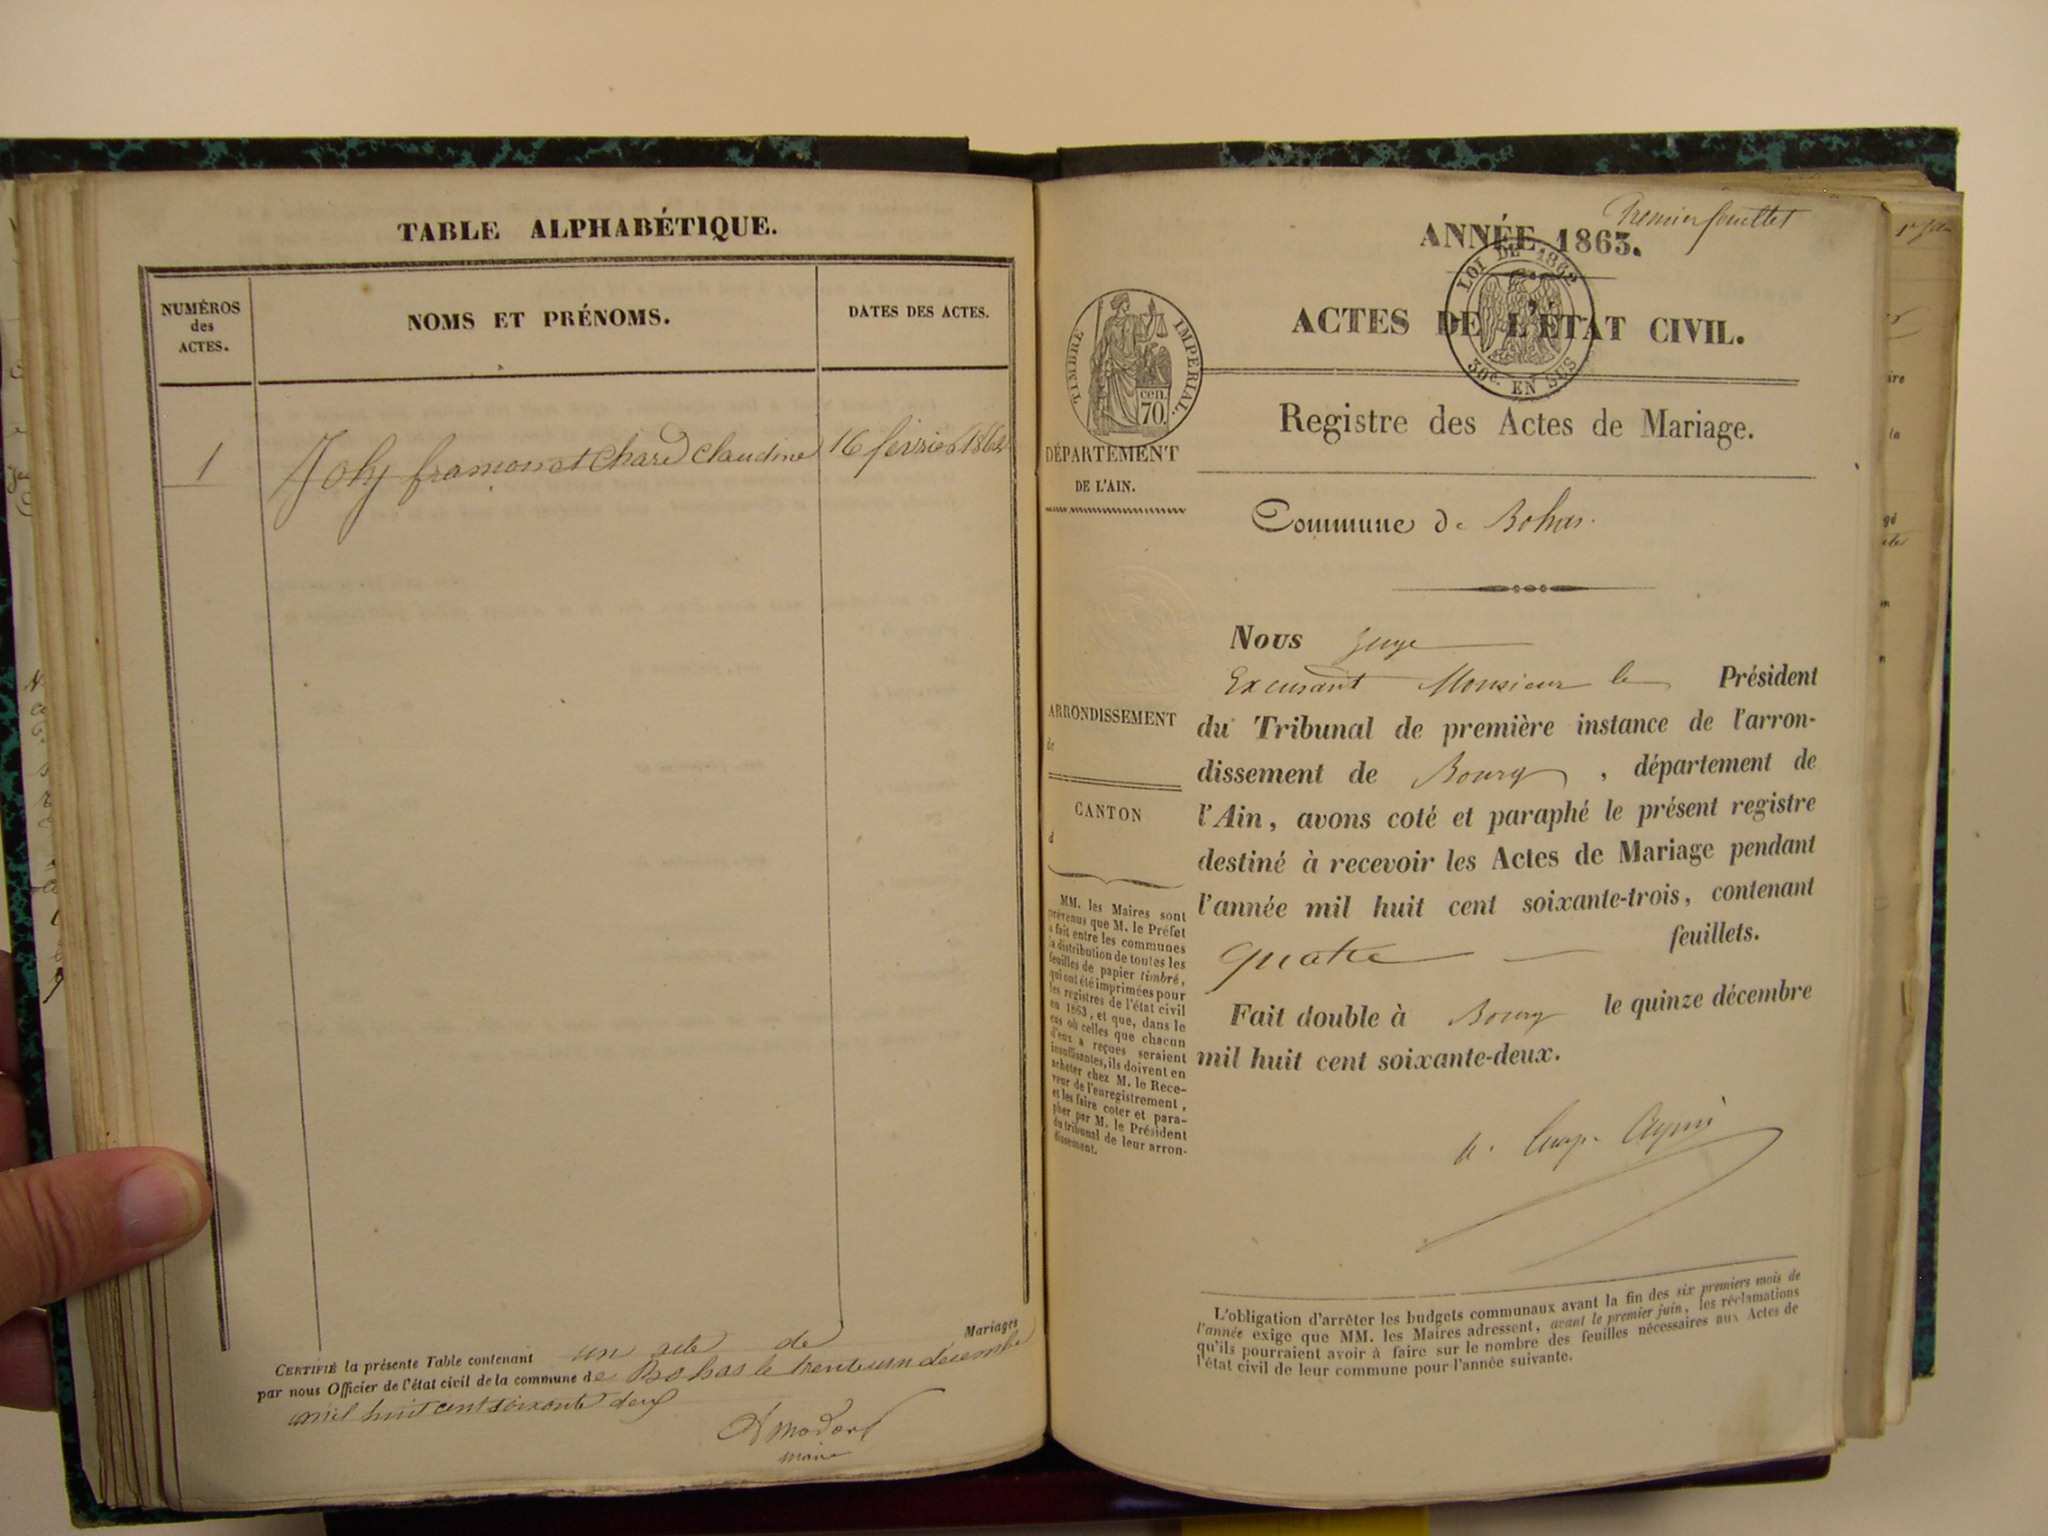 TABLE ALPHABÉTIQUE.
NUMÉROS
des
ACTES.
NOMS ET PRÉNOMS.
DATES DES ACTES.
1
Joly et Chard Claudine 16 février 1862
Mariages
CERTIFIÉ la présente Table contenant un acte de
par nous Officier de l'état civil de la commune de Bohas le trente un décembre
mil huit cent soixante deux
maire
Premier feuillet
ANNÉE 1863.
LOI DE 1862
30c. EN SUS
ACTES DE L'ÉTAT CIVIL.
TIMBRE IMPÉRIAL.
cen.
70.
Registre des Actes de Mariage.
DÉPARTEMENT
DE L'AIN.
Commune de Bohas.
Nous Juge
Excusant Monsieur le Président
ARRONDISSEMENT
de
du Tribunal de première instance de l'arron-
dissement de Bourg, département de
CANTON
d
l'Ain, avons coté et paraphé le présent registre
destiné à recevoir les Actes de Mariage pendant
l'année mil huit cent soixante-trois, contenant
quatre feuillets.
Fait double à Bourg le quinze décembre
mil huit cent soixante-deux.
MM. les Maires sont
prévenus que M. le Préfet
a fait entre les communes
la distribution de toutes les
feuilles de papier timbré,
qui ont été imprimées pour
les registres de l'état civil
en 1863, et que, dans le
cas où celles que chacun
d'eux a reçues seraient
insuffisantes, ils doivent en
acheter chez M. le Rece-
veur de l'enregistrement,
et les faire coter et para-
pher par M. le Président
du tribunal de leur arron-
dissement.
L'obligation d'arrêter les budgets communaux avant la fin des six premiers mois de
l'année exige que MM. les Maires adressent, avant le premier juin, les réclamations
qu'ils pourraient avoir à faire sur le nombre des feuilles nécessaires aux Actes de
l'état civil de leur commune pour l'année suivante.